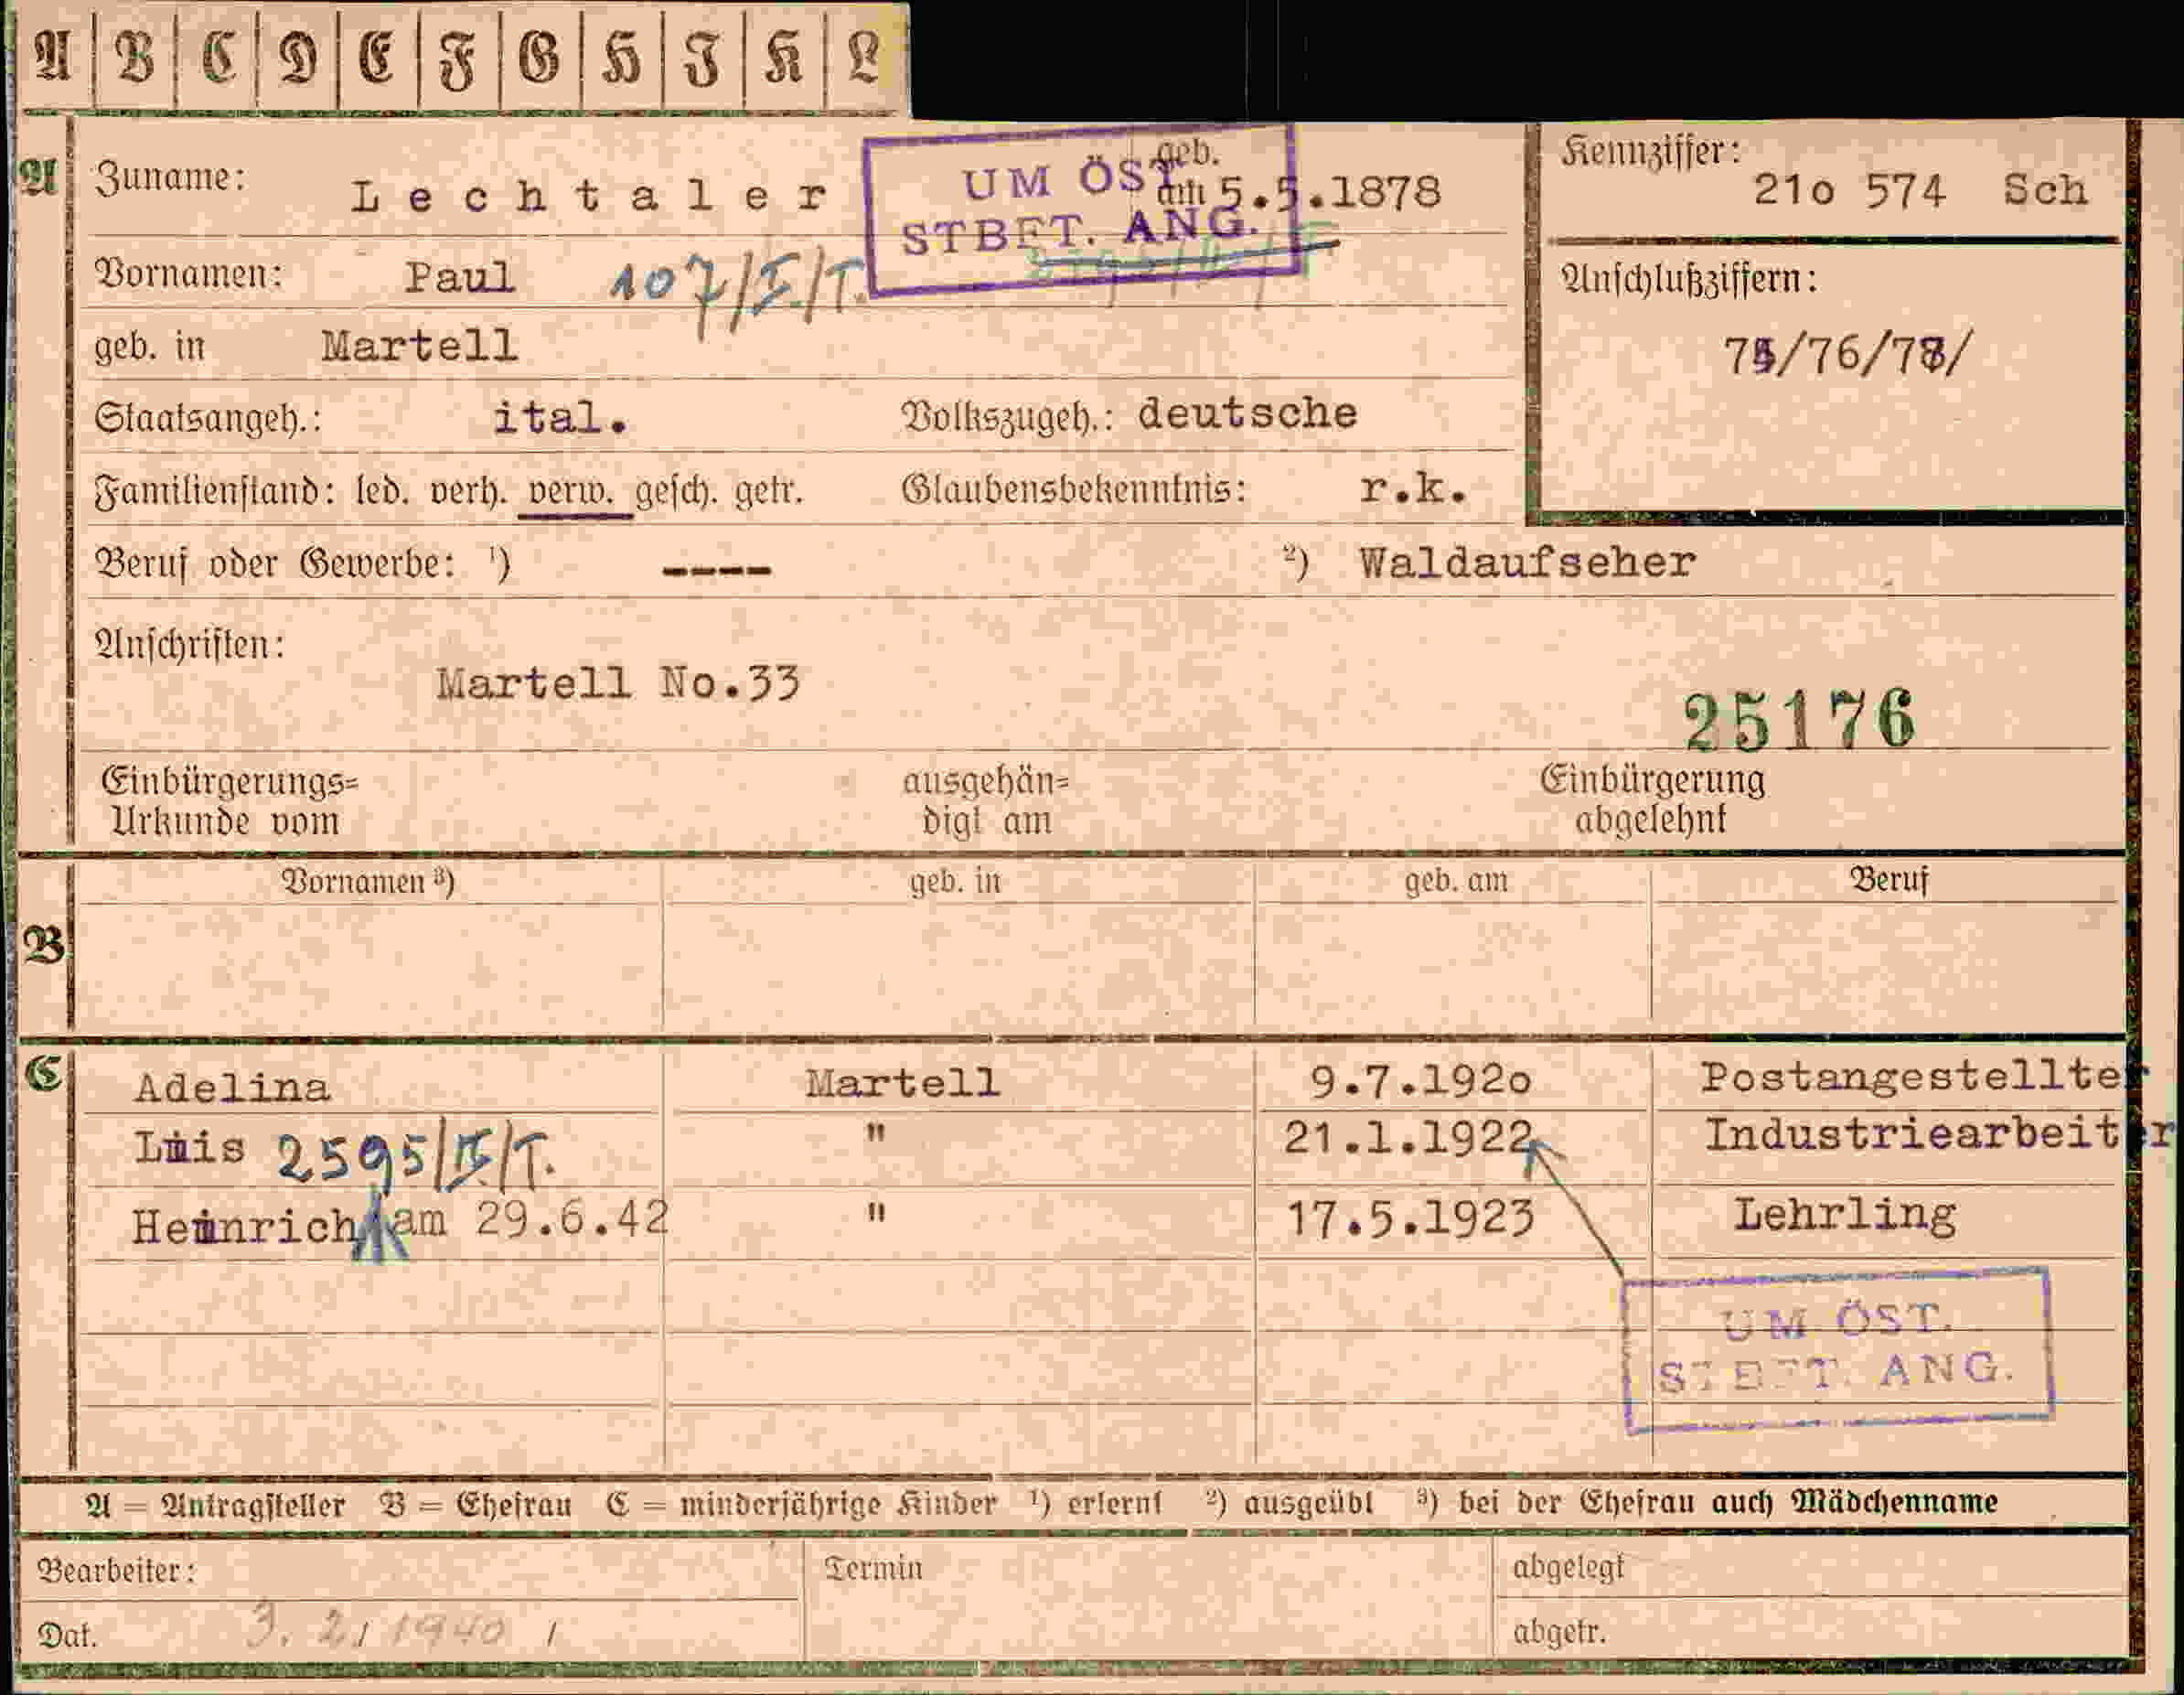 A B C D E F G H I K L
A Zuname: Lechtaler geb. am 5.5.1878
UM ÖST.
STBFT. ANG.
Kennziffer: 21o 574 Sch
Vornamen: Paul 107/I/T.
Anschlußziffern:
geb. in Martell
/76/78/
Staatsangeh.: ital. Volkszugeh.: deutsche
Familienstand: led. verh. verw. gesch. getr. Glaubensbekenntnis: r.k.
Beruf oder Gewerbe: ¹) ---- ²) Waldaufseher
Anschriften:
Martell No.33
25176
Einbürgerungs= ausgehän= Einbürgerung
Urkunde vom digt am abgelehnt
B Vornamen ³) geb. in geb. am Beruf
C Adelina Martell 9.7.192o Postangestellter
Luis 2595/II/T. " 21.1.1922 Industriearbeiter
Heinrich am 29.6.42 " 17.5.1923 Lehrling
UM ÖST.
STBFT. ANG.
A = Antragsteller B = Ehefrau C = minderjährige Kinder ¹) erlernt ²) ausgeübt ³) bei der Ehefrau auch Mädchenname
Bearbeiter: Termin abgelegt
Dat. 3. 2. 1940 abgetr.